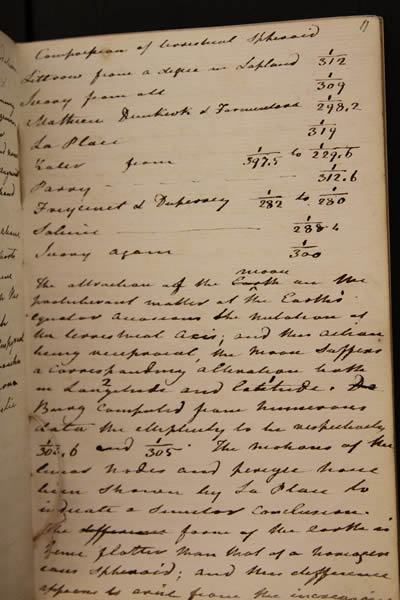 Compression of terrestrial Spheroid
Littrow from a degree in Lapland 1/312
Ivory from all 1/309
Mathieu Dunkirk & Formentera 1/298,2
La Place 1/319
Kater from 1/397,5 to 1/229,6
Parry — 1/312,6
Freycinet & Duperrey 1/282 to 1/280
Sabine — 1/288,4
Ivory again 1/300
The attraction of the Earth moon on the
protuberant matter at the Earth's
equator occasions the nutation of
the terrestrial Axis; and this action
being reciprocal, the moon suffers
a corresponding alteration both
in Longitude 2 and latitude 1.
Burg computed from numerous
data the ellipticity to be respectively
and 1/305. The motions of the
lunar nodes and perigee have
been shown by La Place to
indicate a similar conclusion.
The different form of the earth is
flatter than that of a homogen
eous Spheroid; and this difference
appears to arise from the increasing